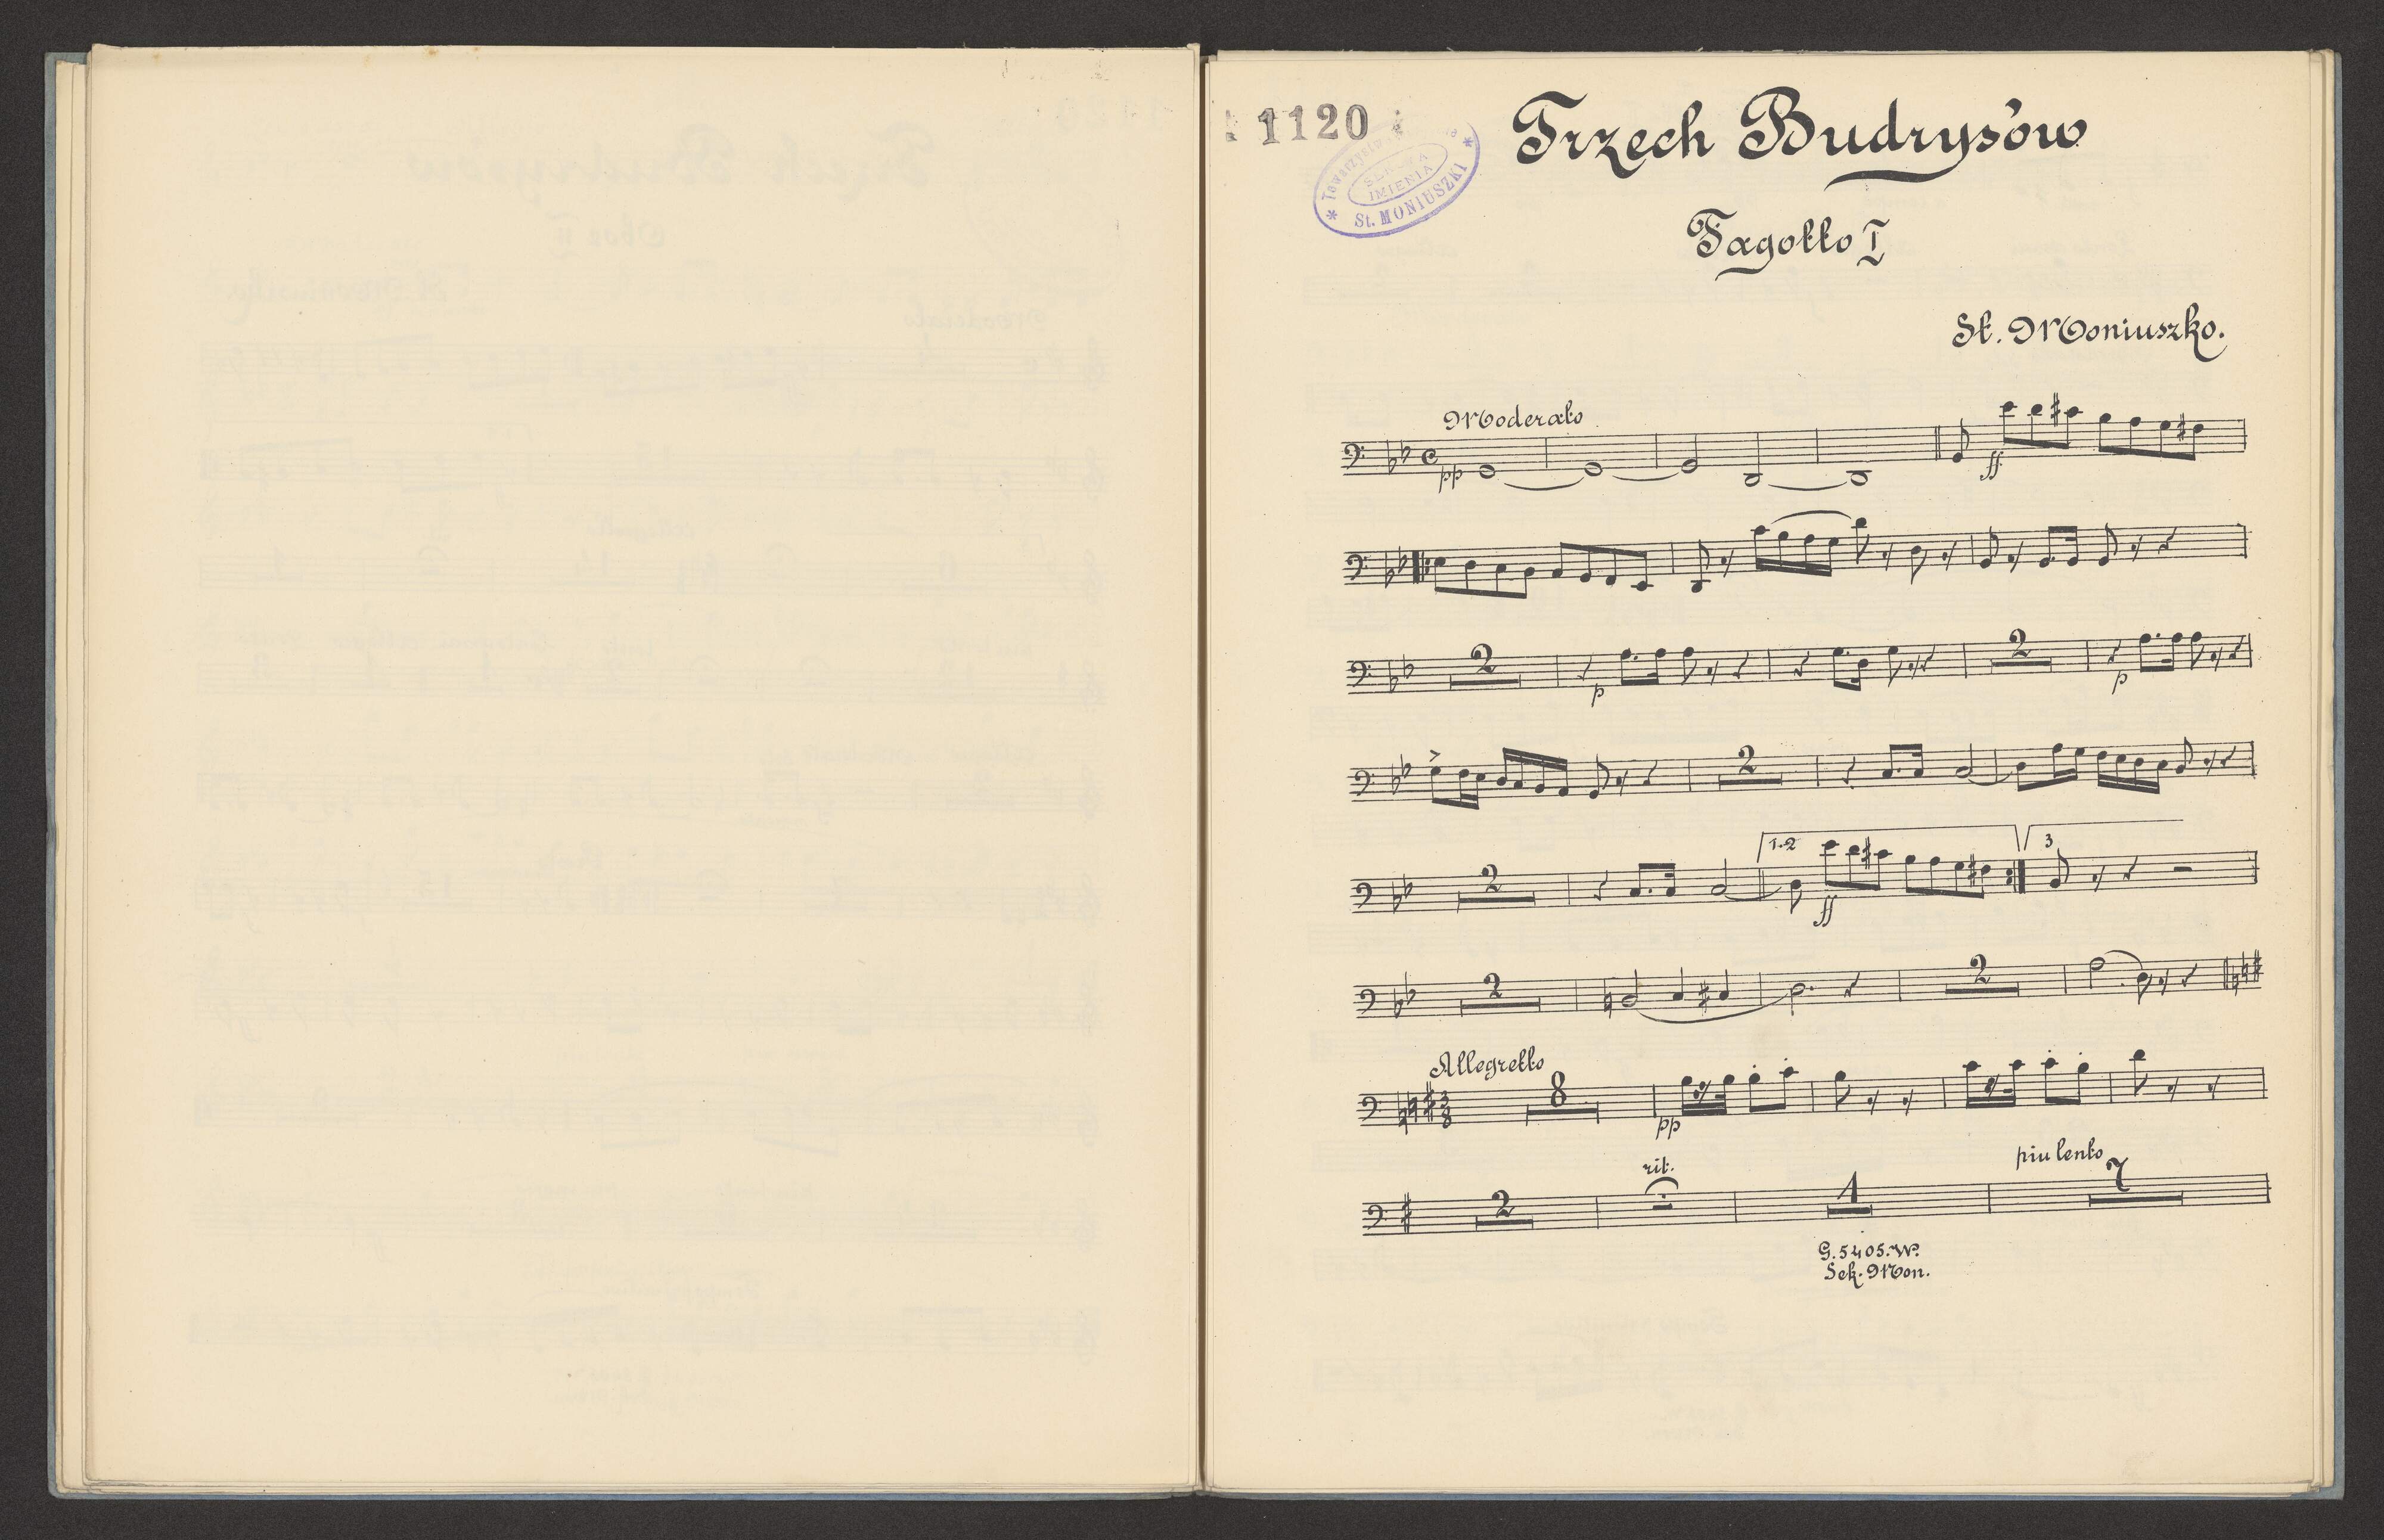 1120
Trzech Budrysów
Towarzystwo
SEKCJA
IMIENIA
St. MONIUSZKI
Fagotto I
St. Moniuszko.
Moderato
pp
ff
2
2
p
p
2
2
1.2
3
ff
2
2
Allegretto
3/8
8
pp
rit.
piu lento
2
1
7
G.5405.W.
Sek. Mon.